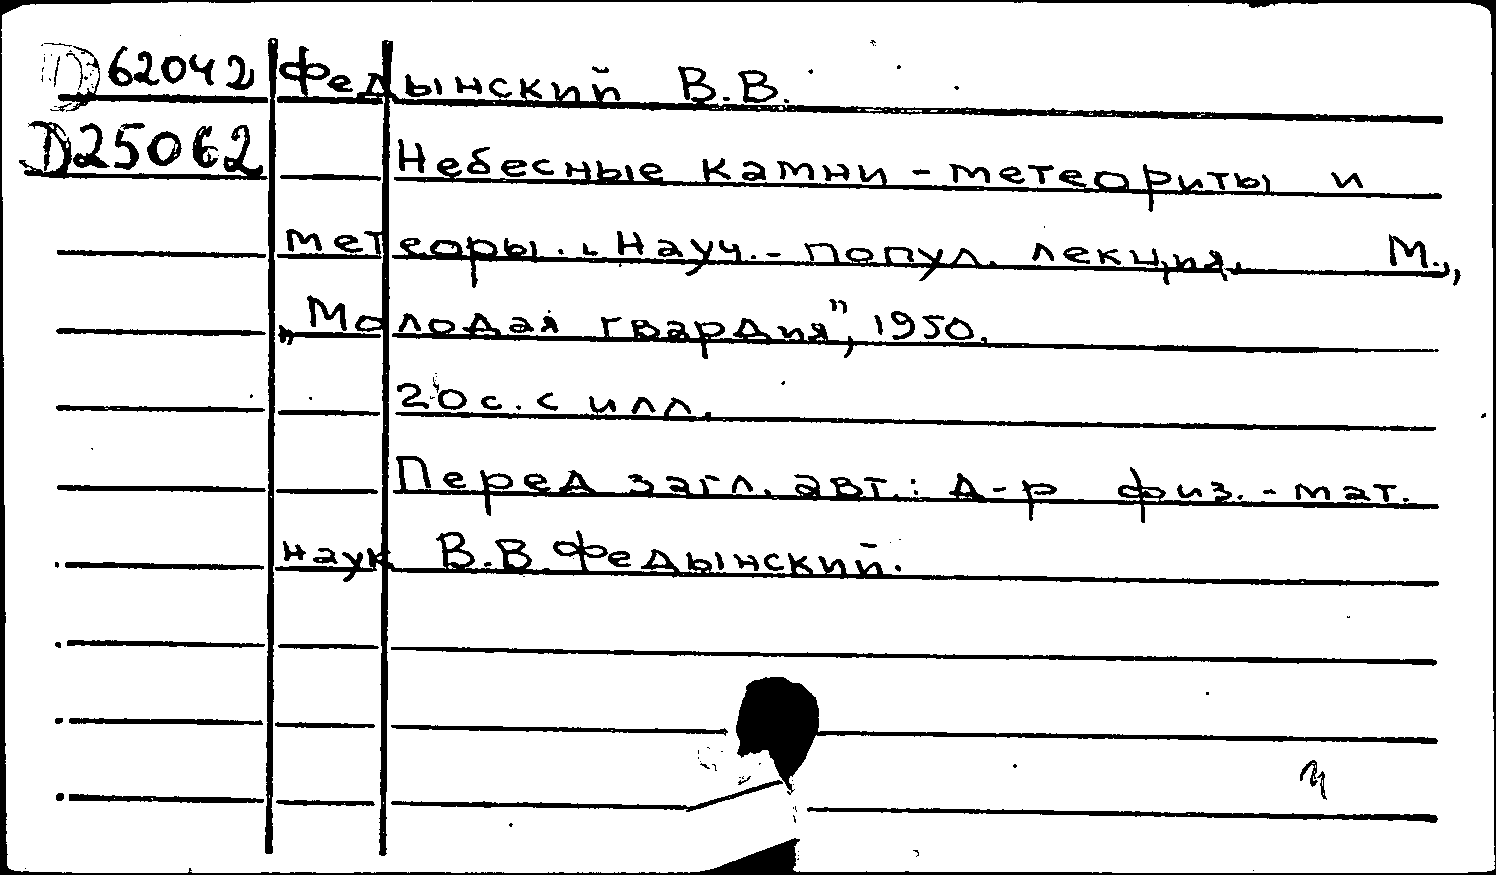 D 62042 Федынский В.В.
D25062 Небесные камни - метеориты и
метеоры. Науч.- попул. лекция. М.,
„Молодая гвардия", 1950.
20 с. с илл.
Перед загл. авт.: д-р физ.-мат.
наук В.В. Федынский.